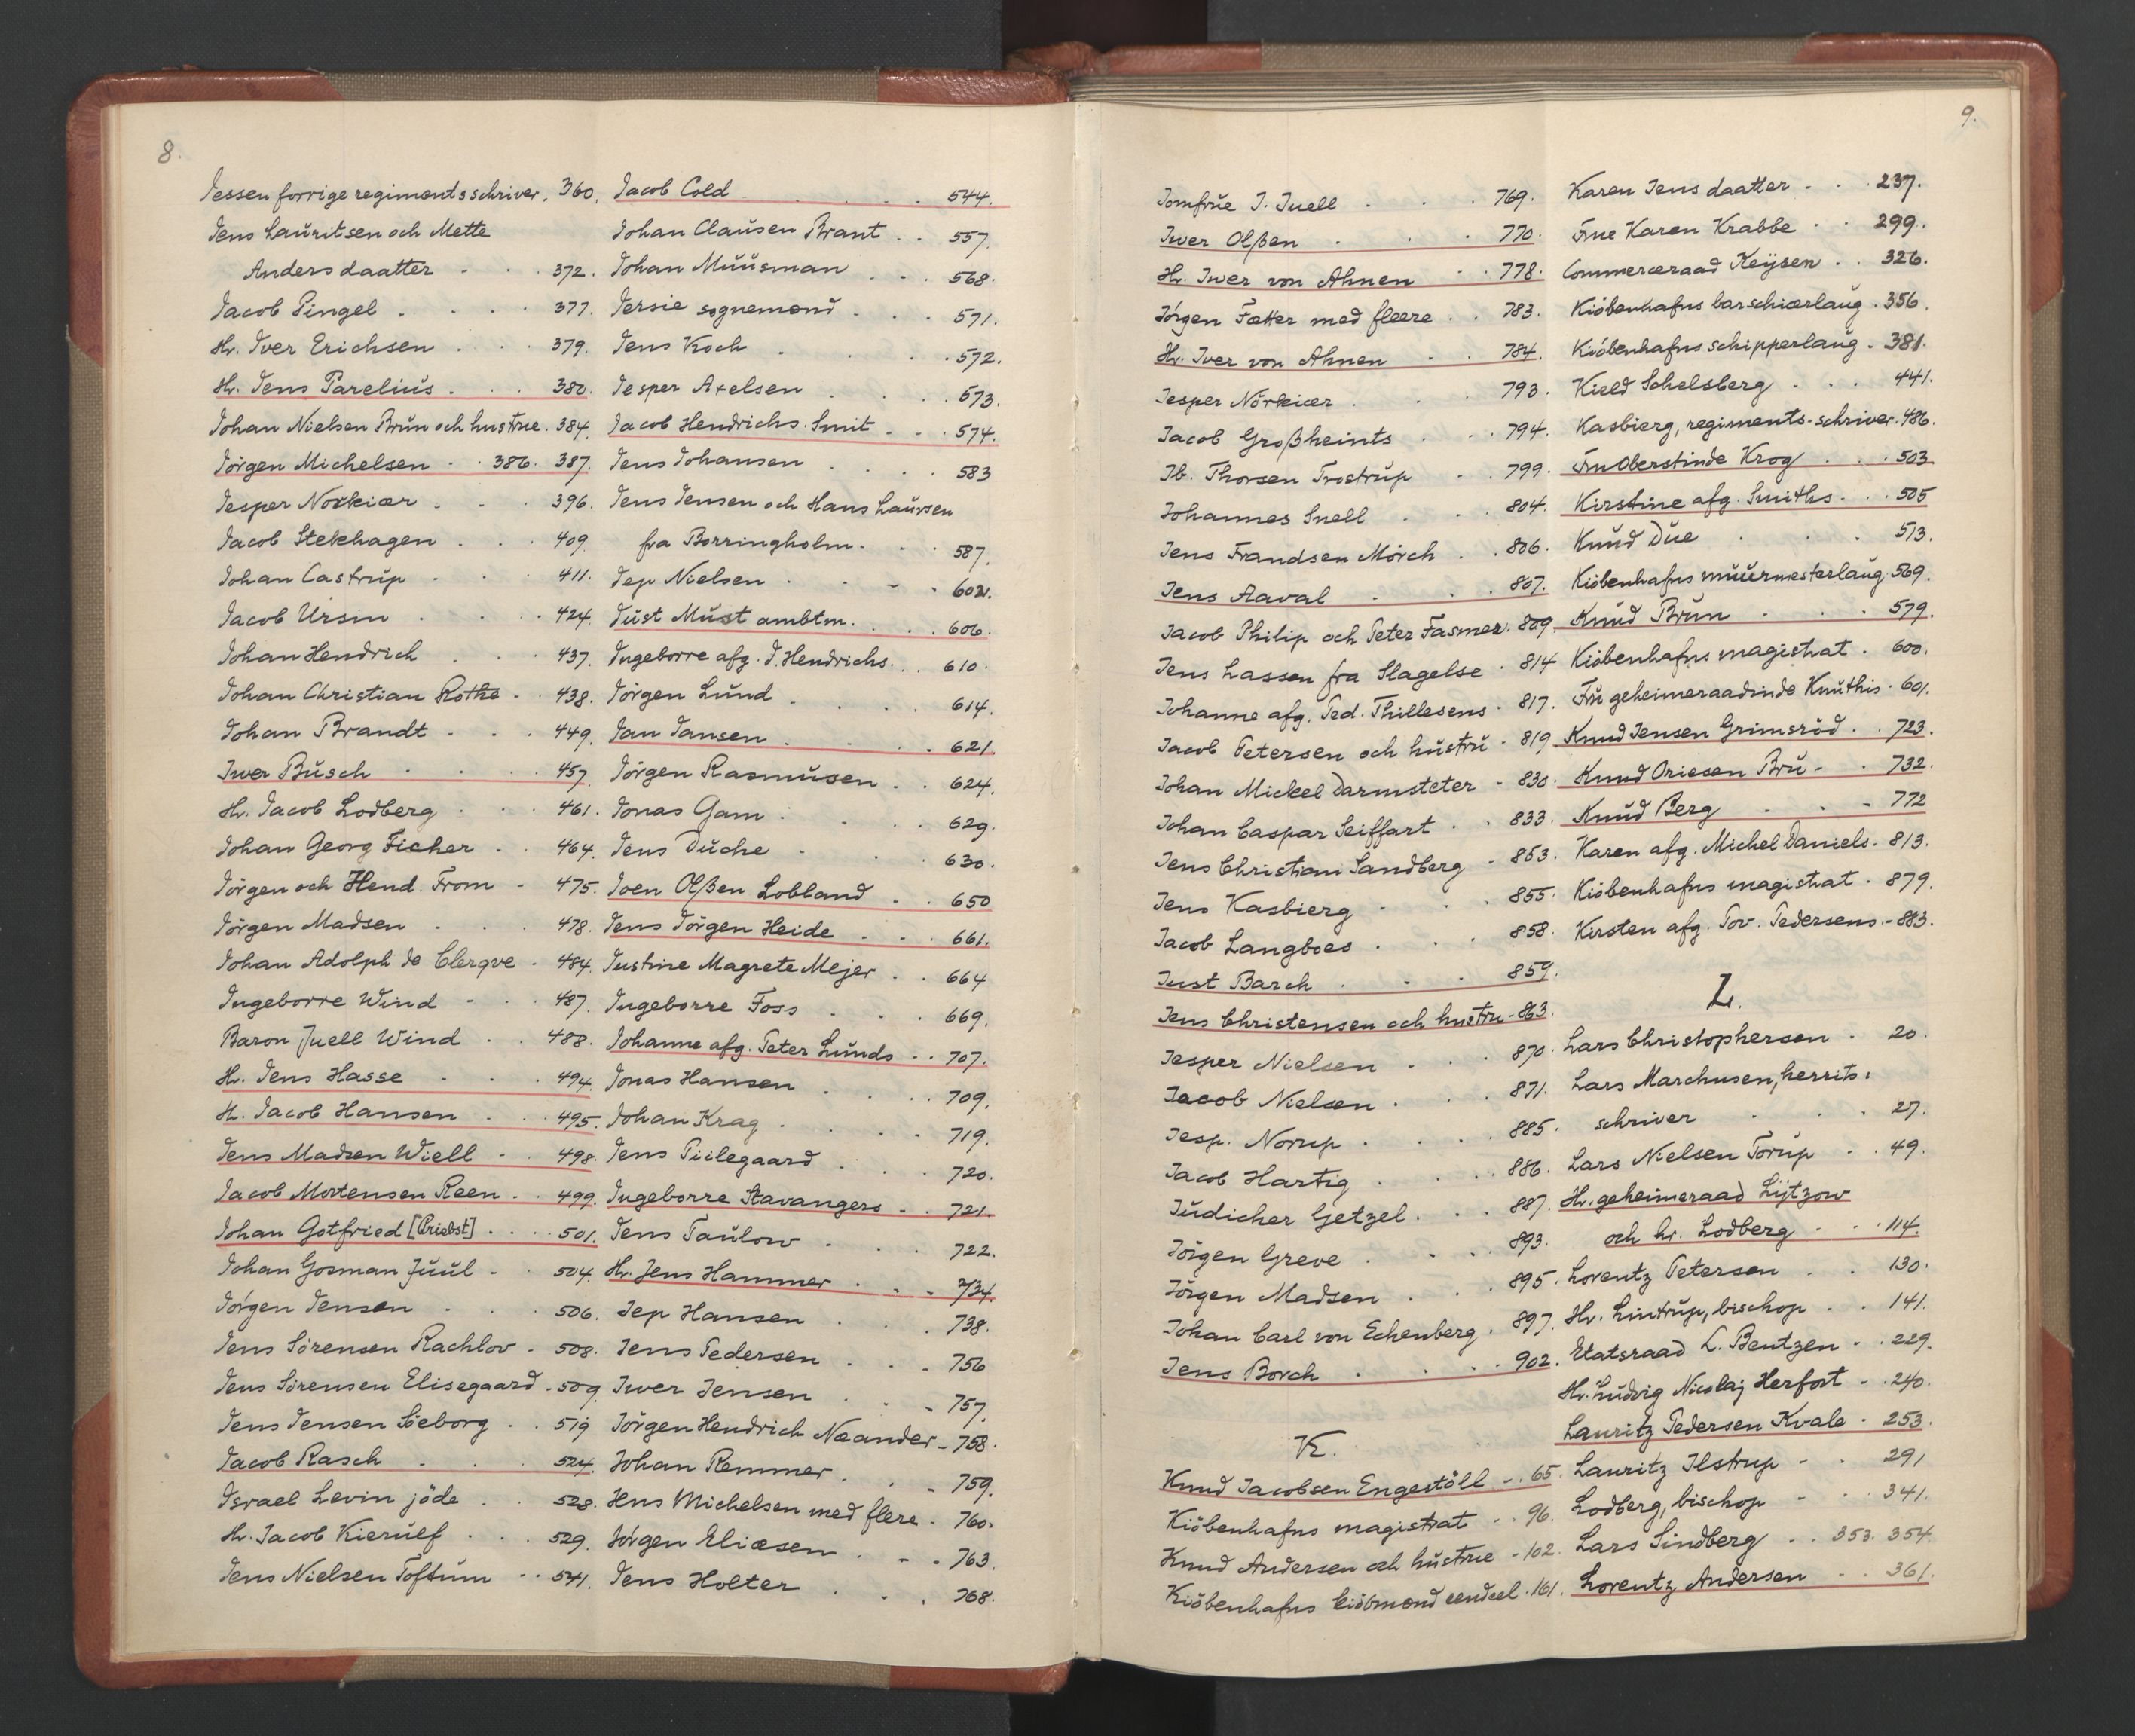 8.
Jessen forrige regimentsschriver. 360.
Jens Lauritsen och Mette
Anders daatter - . . 372.
Jacob Pingel . . . . 377.
Hr. Iver Erichsen . . . 379.
Hr. Jens Parelius . . . 380.
Johan Nielsen Brun och hustrue. 384.
Jörgen Michelsen . . 386. 387.
Jesper Norkiær . . . 396.
Jacob Stekhagen . . . 409.
Johan Castrup . . . 411.
Jacob Ursin . . . 424.
Johan Hendrich . . . 437.
Johan Christian Rothe . . 438.
Johan Brandt . . . 449.
Iwer Busch . . . 457.
Hr. Jacob Lodberg . . . 461.
Johan Georg Ficher . . 464.
Jörgen och Hend. From . 475.
Jörgen Madsen . . . 478.
Johan Adolph de Clerqve . 484.
Ingeborre Wind - . . 487.
Baron Juell Wind . . 488.
Hr. Jens Hasse . . . 494.
Hr. Jacob Hansen . . . 495.
Jens Madsen Wiell - . 498.
Jacob Mortensen Reen . . 499.
Johan Gotfried [Priebst] . . . 501.
Johan Gosman Juul - . 504.
Jörgen Jensen . . . 506.
Jens Sörensen Rachlov - 508.
Jens Sörensen Elisegaard . 509.
Jens Jensen Seborg . . 519
Jacob Rasch . . . 524.
Israel Levin jöde . . 528.
Hr. Jacob Kierulf . . . 529.
Jens Nielsen Toftum . . 541.
Jacob Cold . . . . 544.
Johan Clausen Brant . . 557.
Johan Muusman . . . 568.
Jersie sognemænd . . . 571.
Jens Koch . . . . 572.
Jesper Axelsen . . . 573.
Jacob Hendrichs. Smit - . . 574.
Jens Johansen . . . . 583
Jens Jensen och Hans Laursen
fra Borringholm . . . 587.
Jep Nielsen . . . . 602.
Just Must ambtm. . . . 606.
Ingeborre afg. J. Hendrichs. . . 610.
Jörgen Lund . . . . 614.
Jan Jansen . . . . 621.
Jörgen Rasmusen . . 624.
Jonas Gam . . . . 629.
Jens Duche . . . . 630.
Joen Olßen Lobland . . 650
Jens Jörgen Heide . . . 661.
Justine Magrete Mejer . . 664
Ingeborre Foss . . . 669.
Johanne afg. Peter Lunds . . 707.
Jonas Hansen . . . . 709.
Johan Krag . . . . 719.
Jens Piilegaard . . . 720.
Ingeborre Stavangers . . 721.
Jens Taulow . . . 722.
Hr. Jens Hammer . . . 734.
Jep Hansen . . . . 738.
Jens Pedersen . . . 756
Iwer Jensen . . . 757.
Jörgen Hendrich Neander - 758.
Johan Remmer . . . 759.
Jens Michelsen med flere . 760.
Jörgen Eliæsen . . . 763.
Jens Holter . . . 768.
9.
Jomfrue J. Juell . . . 769.
Iwer Olßen . . . 770.
Hr. Iwer von Ahnen . . 778.
Jörgen Fætter med fleere . . 783.
Hr. Iver von Ahnen . . 784.
Jesper Nörkiær . . . 793.
Jacob Großheints . . . 794.
Ib. Thorsen Trostrup . . 799.
Johannes Snell . . . 804.
Jens Frandsen Mörch . . 806.
Jens Aaval . . . 807.
Jacob Philip och Peter Fasmer. 809.
Jens Lassen fra Slagelse . 814
Johanne afg. Ped. Thillesens . 817.
Jacob Petersen och hustru . 819.
Johan Mickel Darmsteter . 830.
Johan Caspar Seiffart . . 833.
Jens Christian Sandberg . 853.
Jens Kasbierg . . . 855.
Jacob Langboes . . . 858.
Just Barch . . . 859.
Jens Christensen och hustru . 863.
Jesper Nielsen . . . 870.
Jacob Nielsen . . . 871.
Jesp. Norup . . . . 885.
Jacob Hartig . . . 886.
Judicher Getzel . . . 887.
Jörgen Greve . . . 893.
Jörgen Madsen . . . 895.
Johan Carl von Echenberg . 897.
Jens Borch . . . . 902.
K.
Knud Jacobsen Engestöll - . 65.
Kiöbenhafns magistrat . . 96.
Knud Andersen och hustrue - 102.
Kiöbenhafns kiöbmænd eendeel . 161.
Karen Jens daatter . . . 237.
Frue Karen Krabbe . . 299.
Commerceraad Keÿsen . . 326.
Kiöbenhafns barschiærlaug . 356.
Kiöbenhafns schipperlaug . 381.
Kield Schelsberg . . . 441.
Kasbierg, regiments-schriver. 486.
Fru Oberstinde Krog . . . 503
Kirstine afg. Smiths . . . 505
Knud Due . . . 513.
Kiöbenhafns muurmesterlaug. 569.
Knud Brun . . . 579.
Kiöbenhafns magistrat . 600.
Fru geheimeraadinde Knuthis . 601.
Knud Jensen Grimsröd . . 723.
Knud Oriesen Bru - . 732.
Knud Berg . . . 772
Karen afg. Michel Daniels . 813.
Kiöbenhafns magistrat . 879.
Kirsten afg. Pov. Pedersens . 883.
L.
Lars Christophersen . 20.
Lars Marchusen, herrits:
schriver . . . 27.
Lars Nielsen Torup . . 49.
Hr. geheimeraad Lÿtzow
och hr. Lodberg . . . 114.
Lorentz Petersen . . 130.
Hr. Lintrup, bischop . . 141.
Etatsraad L. Bentzen . . 229.
Hr. Ludvig Nicolaj Herfort . . 240.
Lauritz Pedersen Kvale . 253.
Lauritz Ilstrup . . 291
Lodberg, bischop . . . 341.
Lars Lindberg . . 353. 354
Lorentz Andersen . . 361.